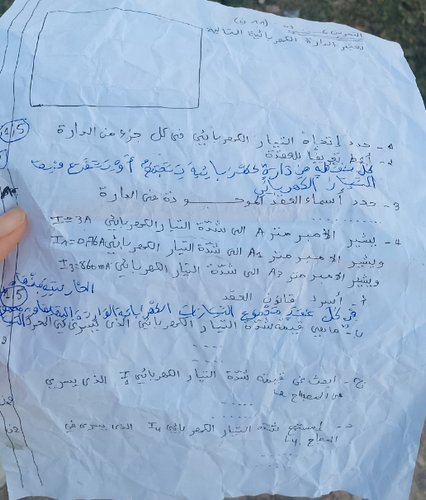 نعتبر الدارة الكهربائية التالية
1- حدد اتجاه التيار الكهربائي في كل جزء من الدارة
2- أعط تعريفا للعقدة
كل نقطة من دارة كهربائية
التيار الكهربائي
3- حدد أسماء العقد الموجودة في الدارة
4- يشير الأمبير متر A الى شدة التيار الكهربائي I=3A
ويشير الامبير متر A1 الى شدة التيار الكهربائي I1=0,76A
ويشير الامبير متر A3 الى شدة التيار الكهربائي I3=860mA
أ- أسرد قانون العقد
في كل عقدة مجموع التيارات الكهربائية الواردة
ب- ماهي قيمة شدة التيار الكهربائي الذي يسري في
ج- ابحث عن قيمة شدة التيار الكهربائي I الذي يسري
في المصباح
د- شدة التيار الكهربائي I4 الذي يسري في
المصباح L4